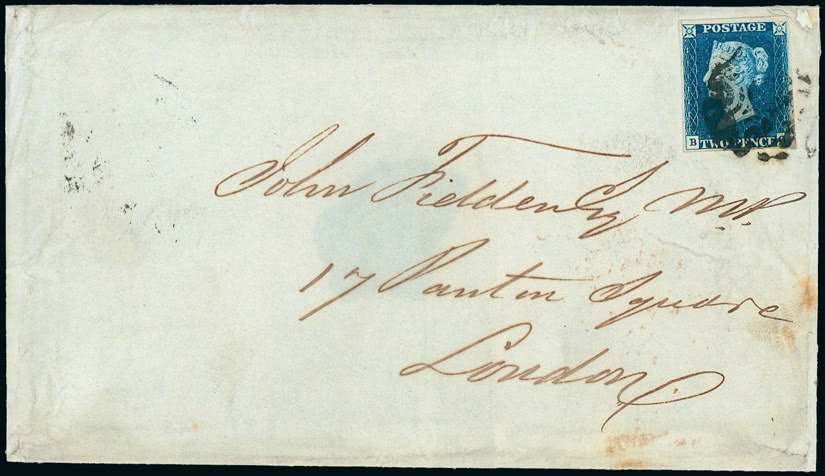 POSTAGE
TWO PENCE
B
John Fielden Esq MP.
17 Panton Square
London